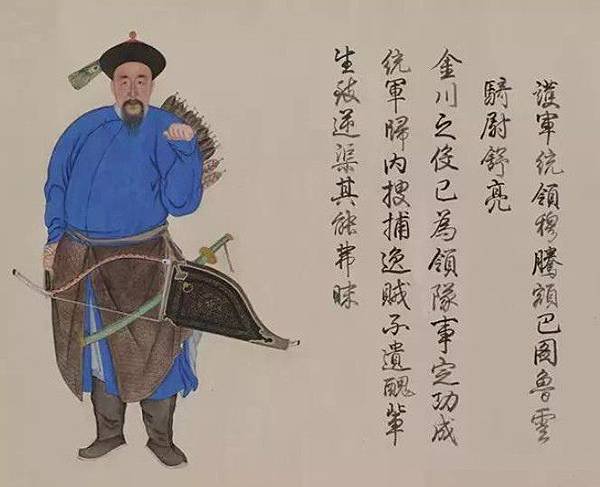 護軍統領穆騰額巴圖魯雲
騎尉舒亮
金川之役已為領隊事定功成
統軍歸內搜捕逸賊不遺醜輩
生致逆渠其能弗昧